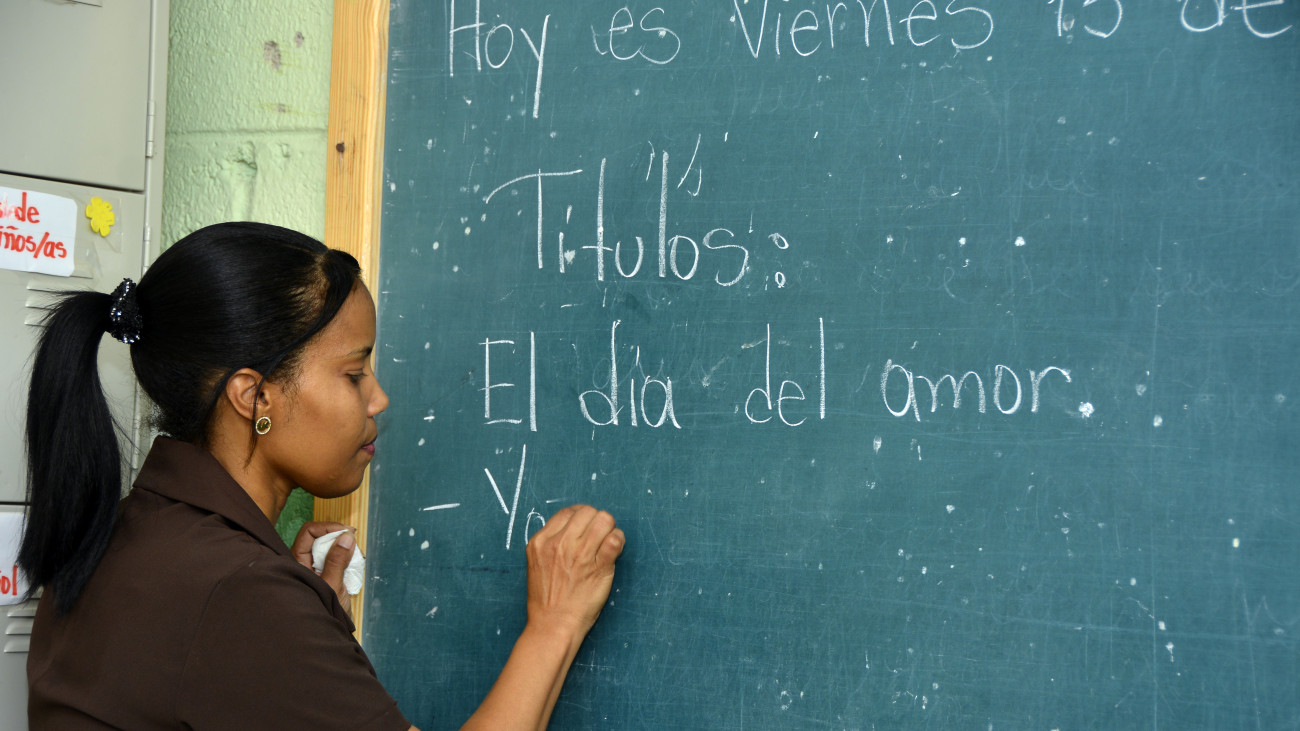 Hoy es Viernes 13 de
Titulos:
El dia del amor
- Yo
de
iños/as
ol